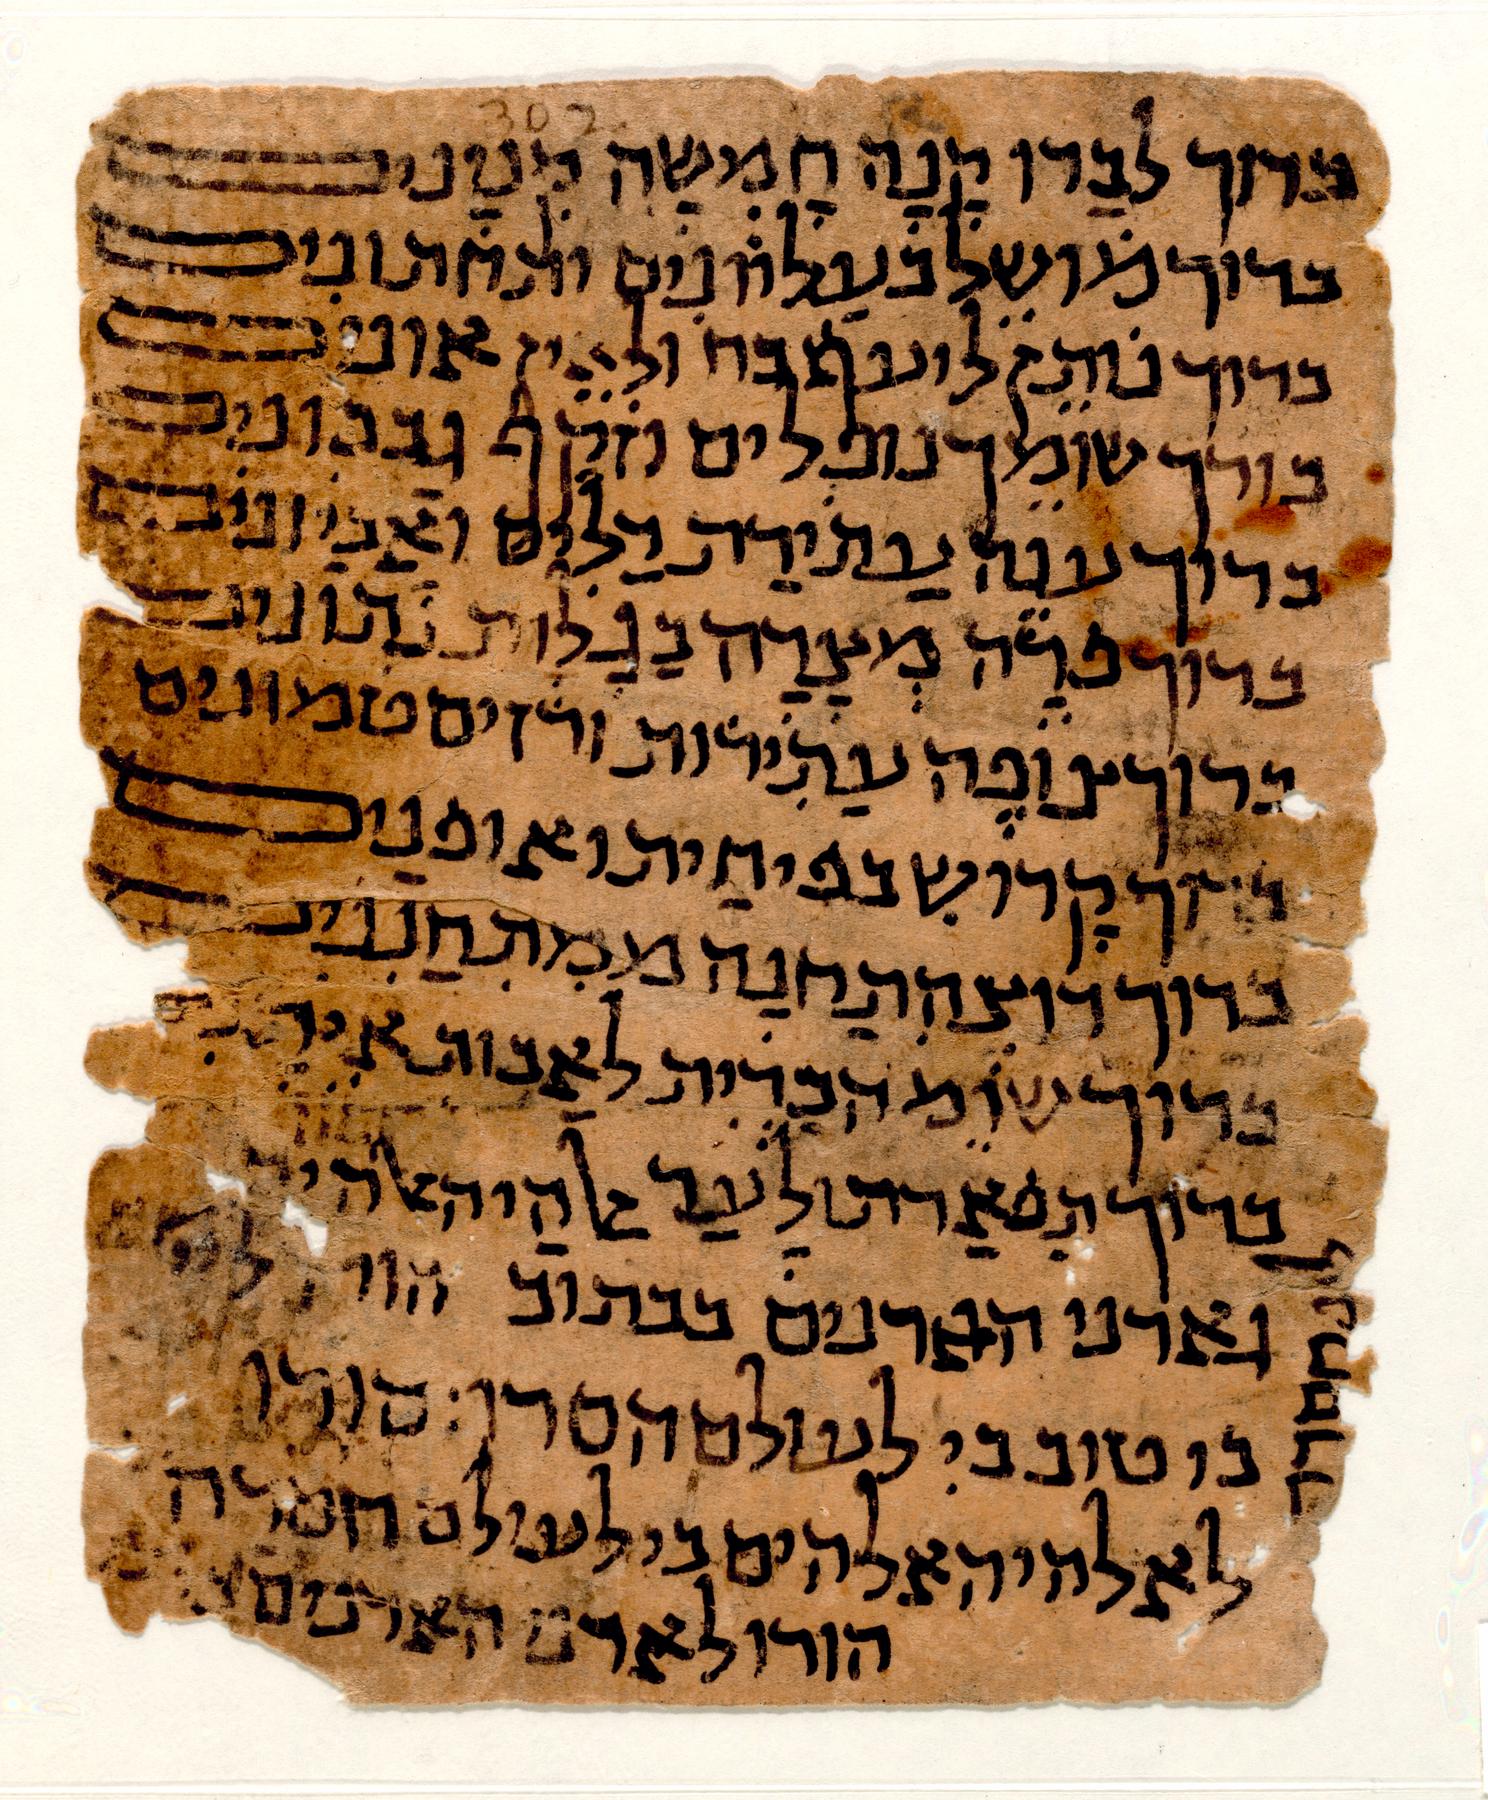 302
ברוך לבדו קנה חמישה קיניינים
ברוך מושל בעליונים ותחתונים
ברוך נותן ליעף כח ולאין אונים
ברוך שומך נופלים וזוקף גבנונים
ברוך ענה עתירת דלים ואביונים
ברוך פדה מצרה בגלות נתונים
ברוך צופה עתידות ורזים טמונים
ברוך קדוש בפי חיות ואופנים
ברוך רוצה תחנה ממתחננים
ברוך שומר הברית לאבות
ברוך תפארתו לעד אלהי האלהים
אדני האדנים ככתוב הודו לייי
כי טוב כי לעולם חסדו: הודו
לאלהי האלהים כי לעולם חסדה
הודו לאדני האדנים